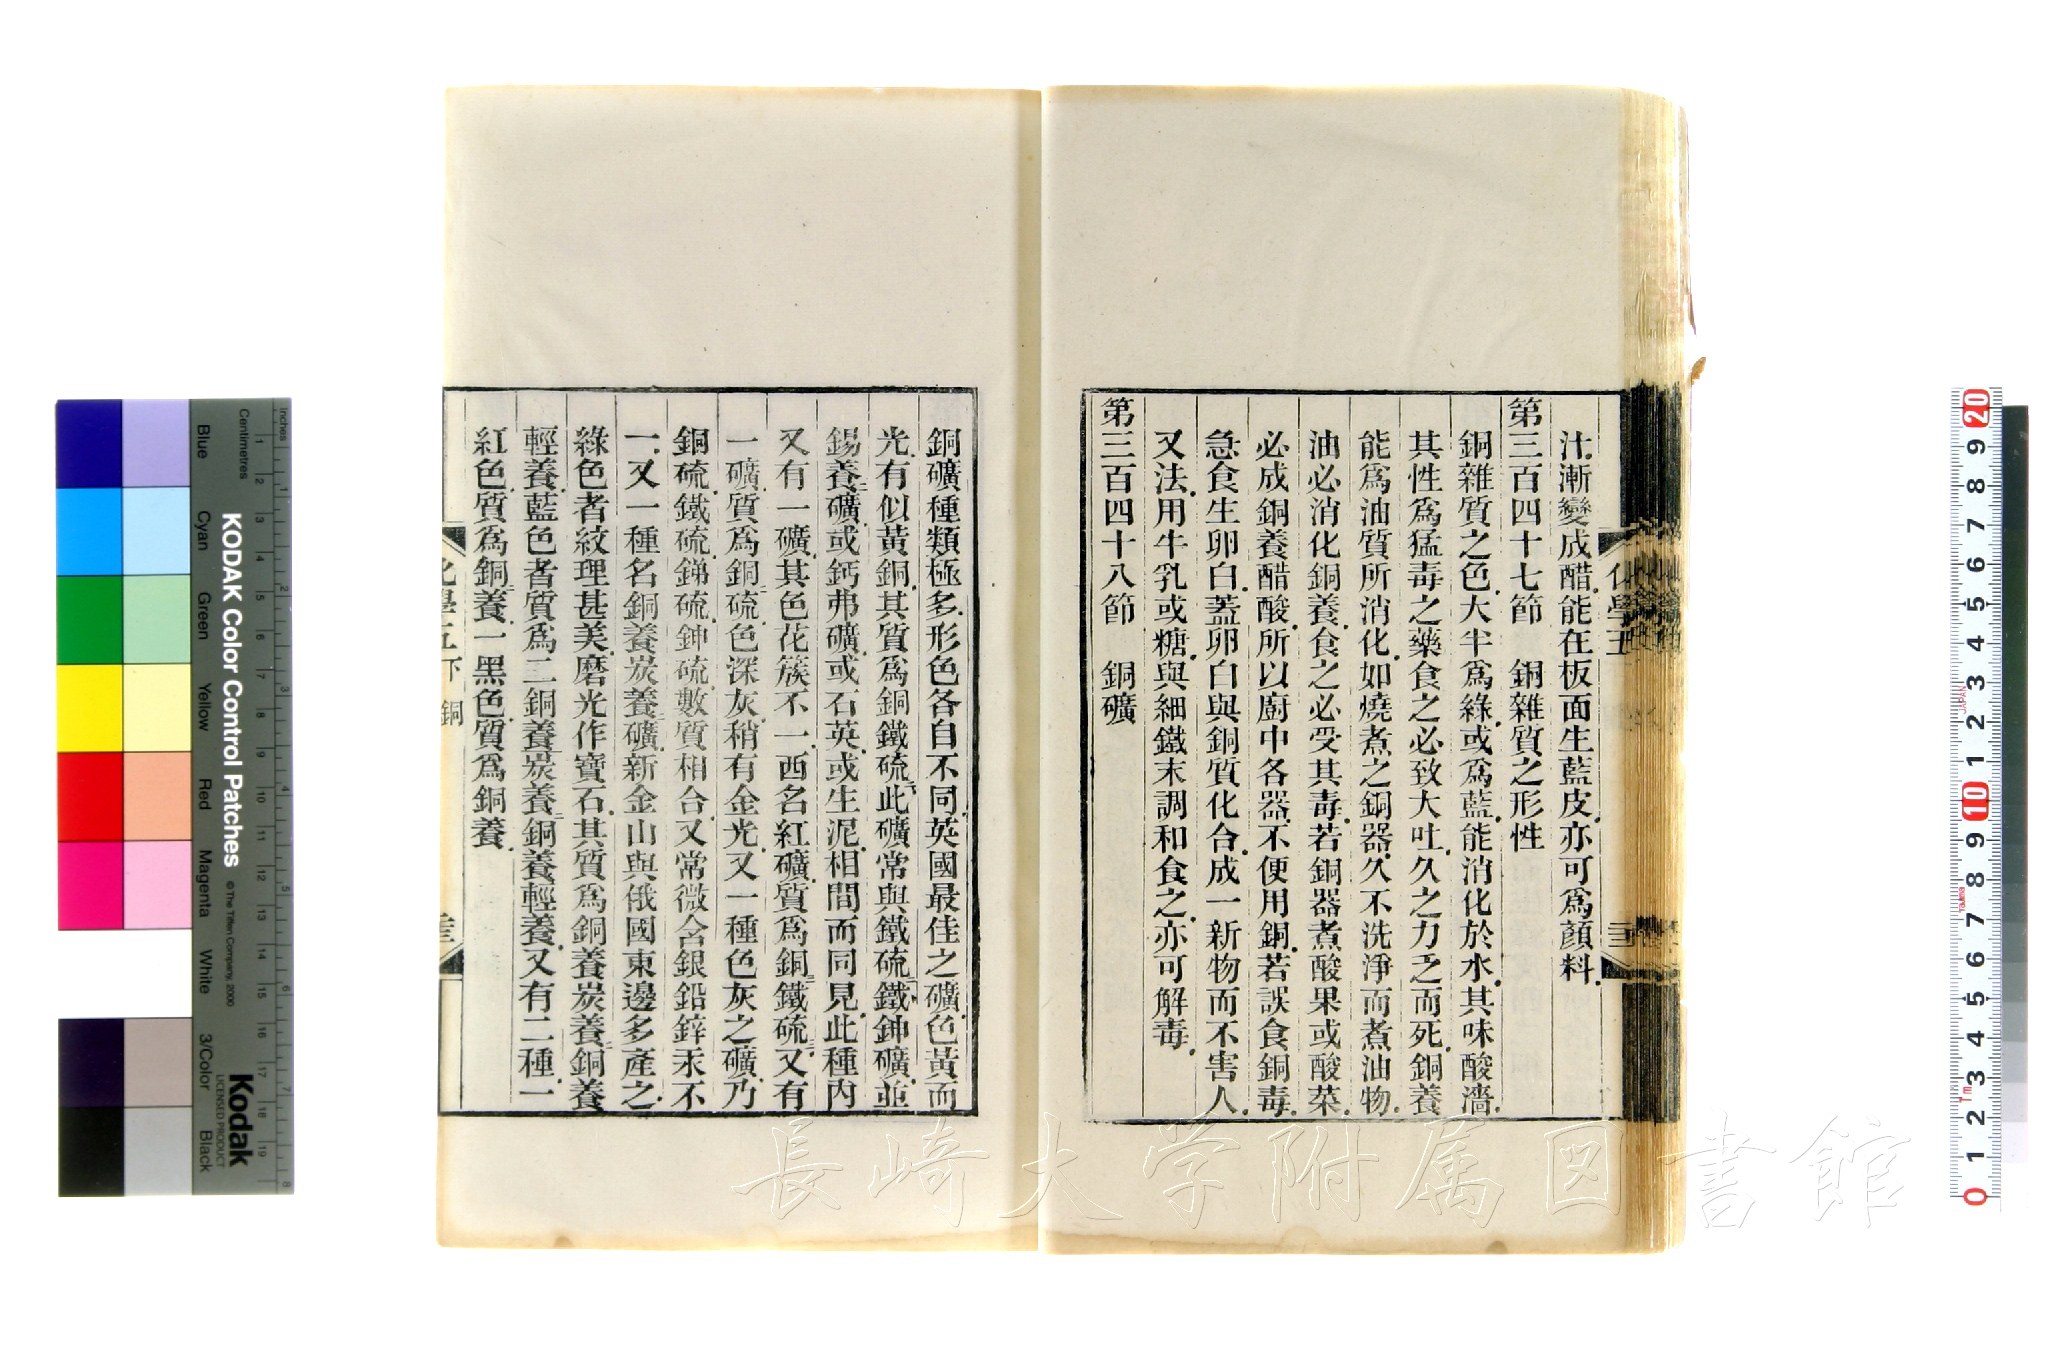 汁.漸變成醋.能在板面生藍皮.亦可爲顏料.
第三百四十七節　銅雜質之形性
銅雜質之色.大半爲綠.或爲藍.能消化於水.其味酸濇.
其性爲猛毒之藥.食之必致大吐.久之力乏而死.銅養
能爲油質所消化.如燒煮之銅器.久不洗淨而煮油物.
油必消化銅養.食之必受其毒.若銅器煮酸果或酸菜.
必成銅養醋酸.所以廚中各器.不便用銅.若誤食銅毒.
急食生卵白.蓋卵白與銅質化合.成一新物而不害人.
又法.用牛乳或糖.與細鐵末調和食之.亦可解毒.
第三百四十八節　銅礦
銅礦種類極多.形色各自不同.英國最佳之礦.色黃而
光.有似黃銅.其質爲銅鐵硫二.此礦常與鐵硫二鐵鉮礦.並
錫養二礦.或鈣弗礦.或石英.或生泥.相間而同見.此種內
又有一礦.其色花簇不一.西名紅礦.質爲銅三鐵硫三.又有
一礦.質爲銅二硫.色深灰.稍有金光.又一種色灰之礦.乃
銅硫.鐵硫.銻硫.鉮硫.數質相合.又常微含銀鉛鋅汞不
一.又一種名銅養炭養二礦.新金山與俄國東邊多產之.
綠色者紋理甚美.磨光作寶石.其質爲銅養炭養二銅養
輕養.藍色者.質爲二銅養炭養二銅養輕養.又有二種.一
紅色.質爲銅二養.一黑色.質爲銅養.
化學五下　銅
Inches
Centimetres
KODAK Color Control Patches
© The Tiffen Company, 2000
Kodak
LICENSED PRODUCT
Blue
Cyan
Green
Yellow
Red
Magenta
White
3/Color
Black
長崎大学附属図書館